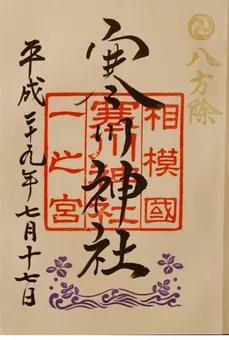 八方除
相模國
寒川神社
一之宮
寒川神社
平成二十九年七月十七日